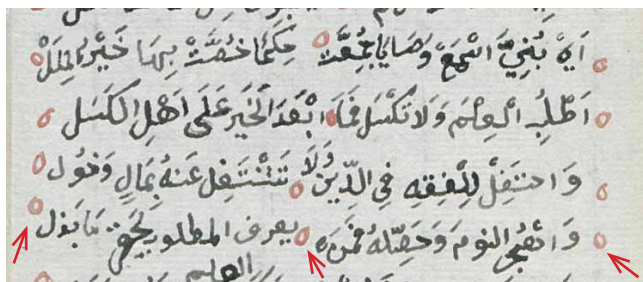 اَيْ بُنَيَّ اسْمَعْ وَصَايَا جُمِعَتْ حِكَمًا خُصَّتْ بِهَا خَيْرُ المِلَلْ
اَطْلُبِ الْعِلْمَ وَلَا تَكْسَلْ فَمَا اَبْعَدَ الْخَيْرَ عَلَى اَهْلِ الْكَسَلِ
وَاحْتَفِلْ لِلْفِقْهِ فِي الدِّينِ وَلَا تَشْتَغِلْ عَنْهُ بِمَالٍ وَخُول
وَاهْجُرِ النَّومَ وَحَصِّلْهُ فَمَنْ يعرف المطلوب يَحْقِر مَا بَذَل
العلم